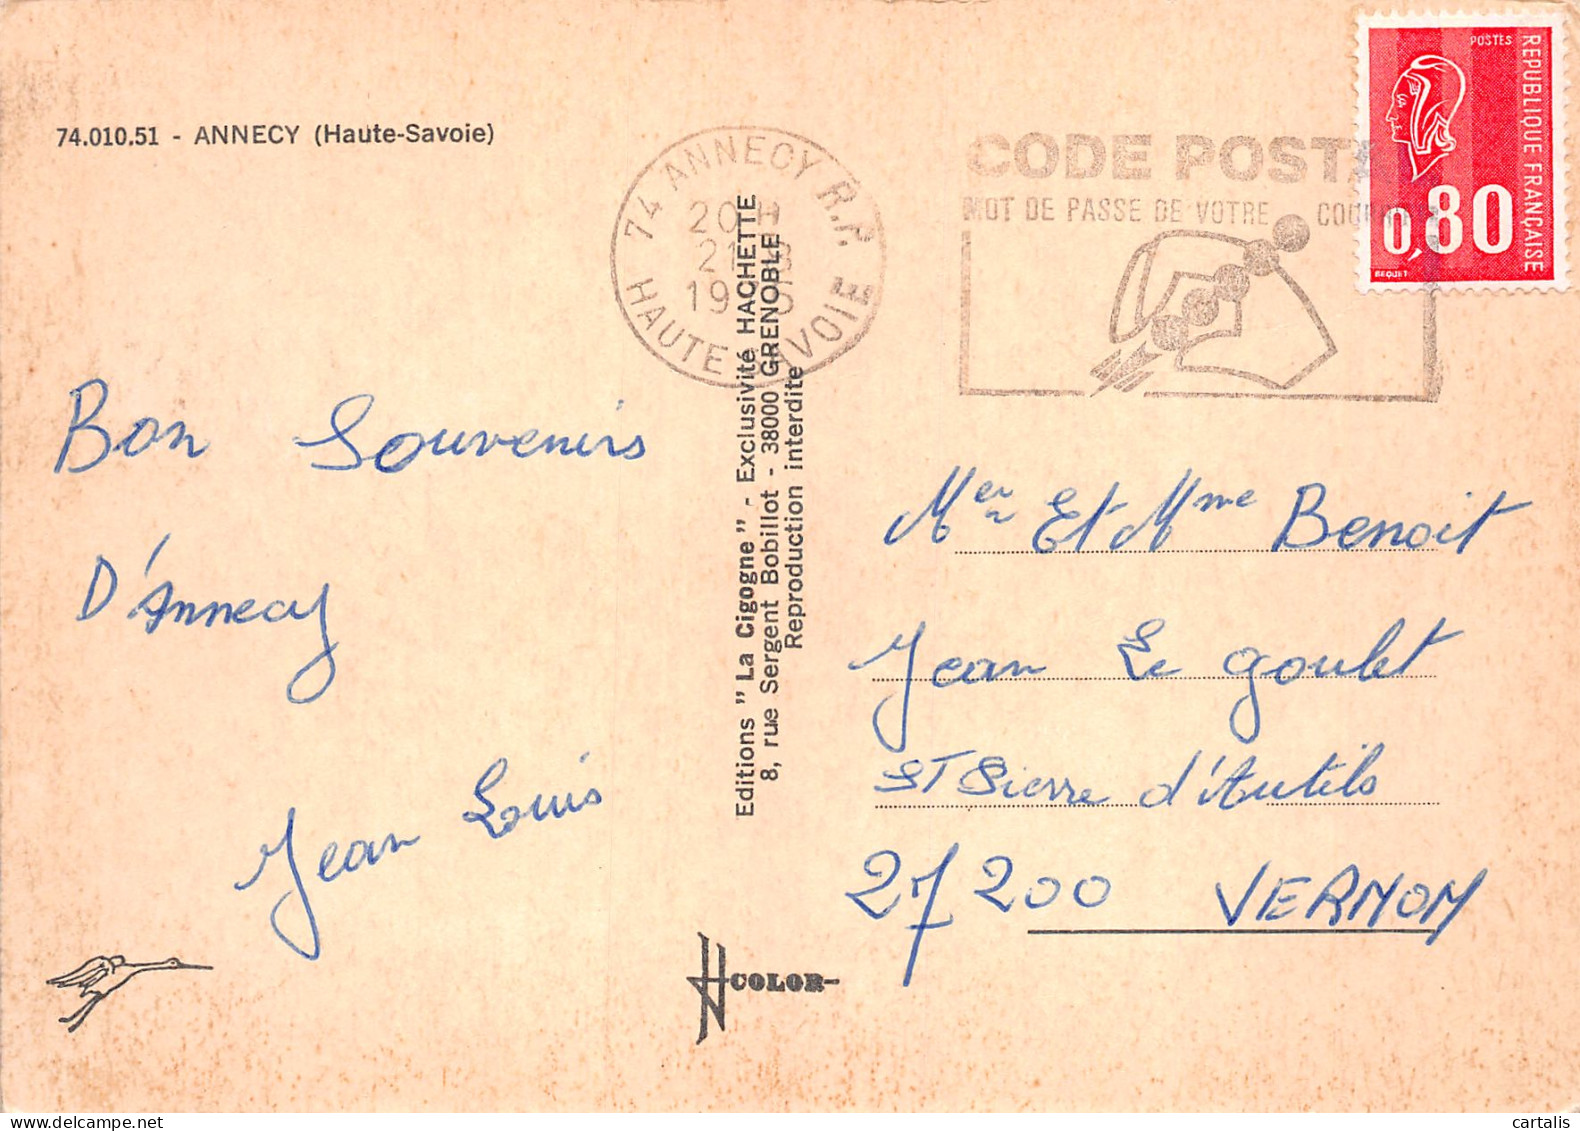 74.010.51 - ANNECY (Haute-Savoie)
74 ANNECY R.P.
20 H
21
19
HAUTE SAVOIE
CODE POST
MOT DE PASSE DE VOTRE COU
POSTES
REPUBLIQUE FRANÇAISE
0,80
BEQUET
Bon Souvenirs
D'Annecy
Jean Louis
Editions " La Cigogne " - Exclusivité HACHETTE
8, rue Sergent Bobillot - 38000 GRENOBLE
Reproduction interdite
Mer Et Mme Benoit
Jean Le Goulet
ST Pierre d'Autils
27200 VERNON
COLOR
cartalis